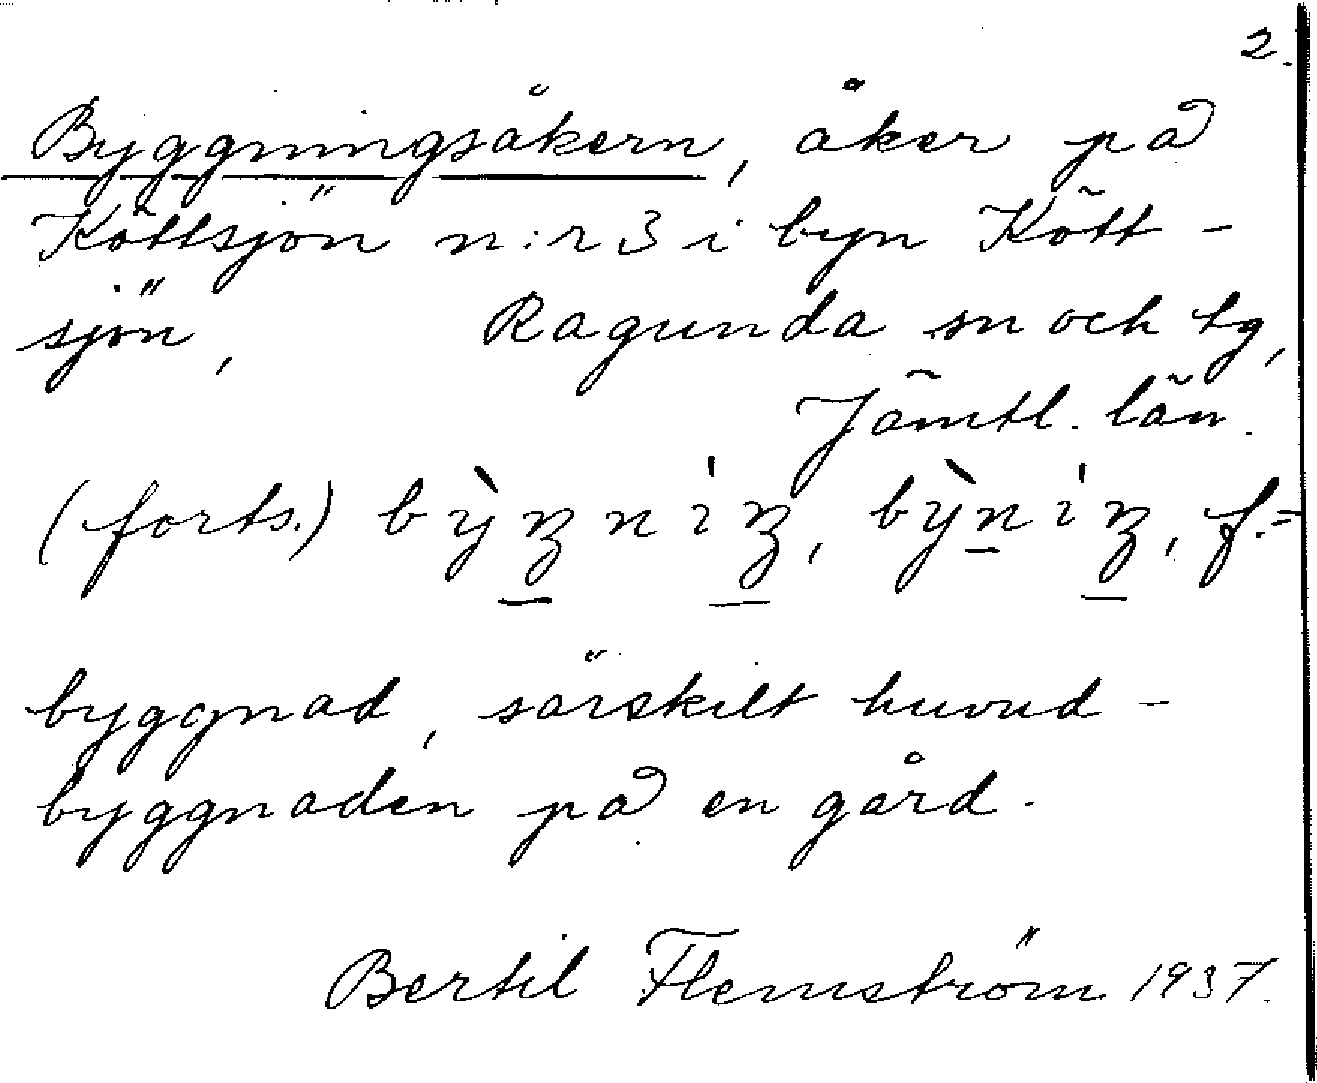 2.
Byggningsåkern, åker på
Köttsjön n:r 3 i byn Kött-
sjön, Ragunda sn och tg,
Jämtl. län.
(forts.) bỳŋniŋ, bỳniŋ, f. =
byggnad, särskilt huvud-
byggnaden på en gård.
Bertil Flemström 1937.